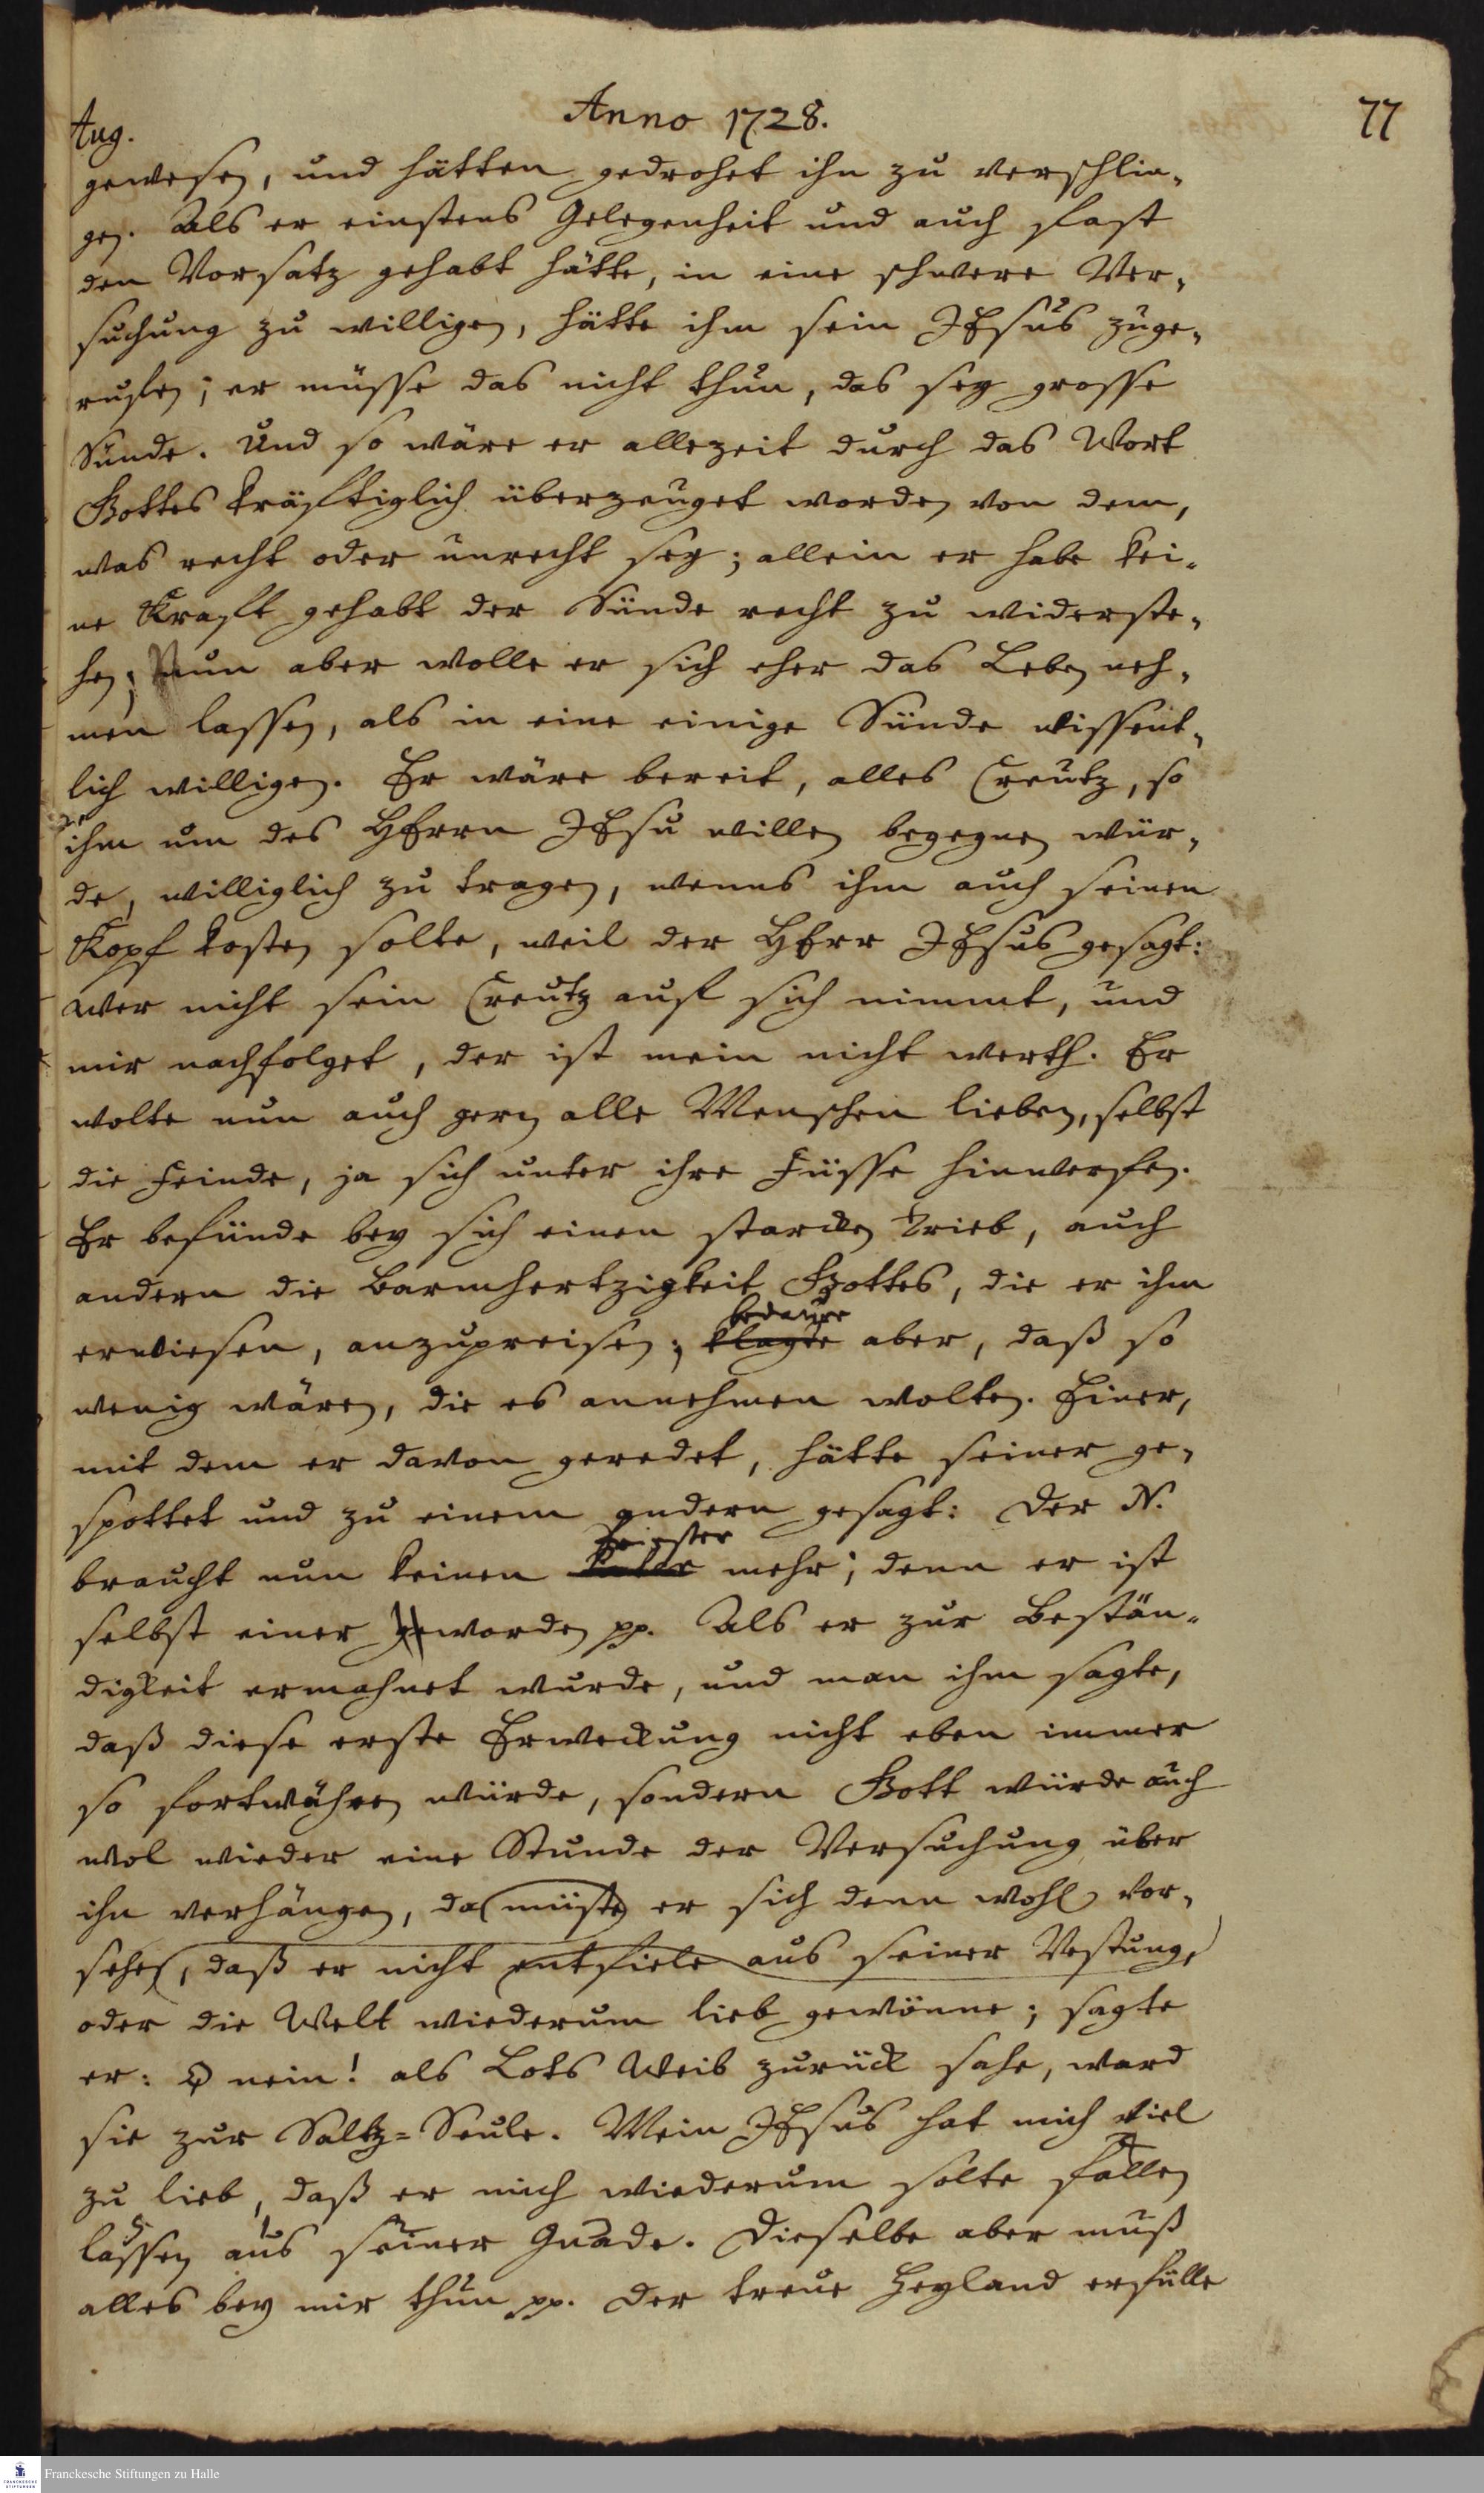 Anno 1728.
77
Aug.
gewesen, und hätten gedrohet ihn zu verschlin-
gen. Als er einstens Gelegenheit und auch fast
den Vorsatz gehabt hätte, in eine schwere Ver-
suchung zu willigen, hätte ihm sein JEsus zuge-
rufen; er müsse das nicht thun, das sey grosse
Sünde. Und so wäre er allezeit durch das Wort
Gottes kräftiglich überzeuget worden von dem,
was recht oder unrecht sey; allein er habe kei-
ne Kraft gehabt der Sünde recht zu widerste-
hen; Nun aber wolle er sich eher das Leben neh-
men lassen, als in eine einige Sünde wissent-
lich willigen. Er wäre bereit, alles Creutz, so
ihm um des HErrn JEsu willen begegnen wür-
de, williglich zu tragen, wenns ihm auch seinen
Kopf kosten solte, weil der HErr JEsus gesagt:
wer nicht sein Creutz auf sich nimmt, und
mir nachfolget, der ist mein nicht werth. Er
wolte nun auch gern alle Menschen lieben, selbst
die Feinde, ja sich unter ihre Füsse hinwerfen.
Er befünde bey sich einen starcken Trieb, auch
andern die Barmhertzigkeit Gottes, die er ihm
bedaure
erwiesen, anzupreisen; klagte aber, daß so
wenig wären, die es annehmen wolten. Einer,
mit dem er davon geredet, hätte seiner ge-
spottet und zu einem andern gesagt: Der N.
Priester
braucht nun keinen mehr; denn er ist
selbst einer geworden pp. Als er zur Bestän-
digkeit ermahnet wurde, und man ihm sagte,
daß diese erste Erweckung nicht eben immer
so fortwähren würde, sondern Gott würde auch
wol wieder eine Stunde der Versuchung über
ihn verhängen, da müste er sich denn wohl vor-
sehen, daß er nicht entfiele aus seiner Vestung,
oder die Welt wiederum lieb gewönne; sagte
er: O nein! als Lots Weib zurück sahe, ward
sie zur Saltz-Seule. Mein JEsus hat mich viel
zu lieb, daß er mich wiederum solte fallen
lassen aus seiner Gnade. Dieselbe aber muß
alles bey mir thun pp. Der treue Heyland erfülle
FRANCKESCHE STIFTUNGEN
Franckesche Stiftungen zu Halle